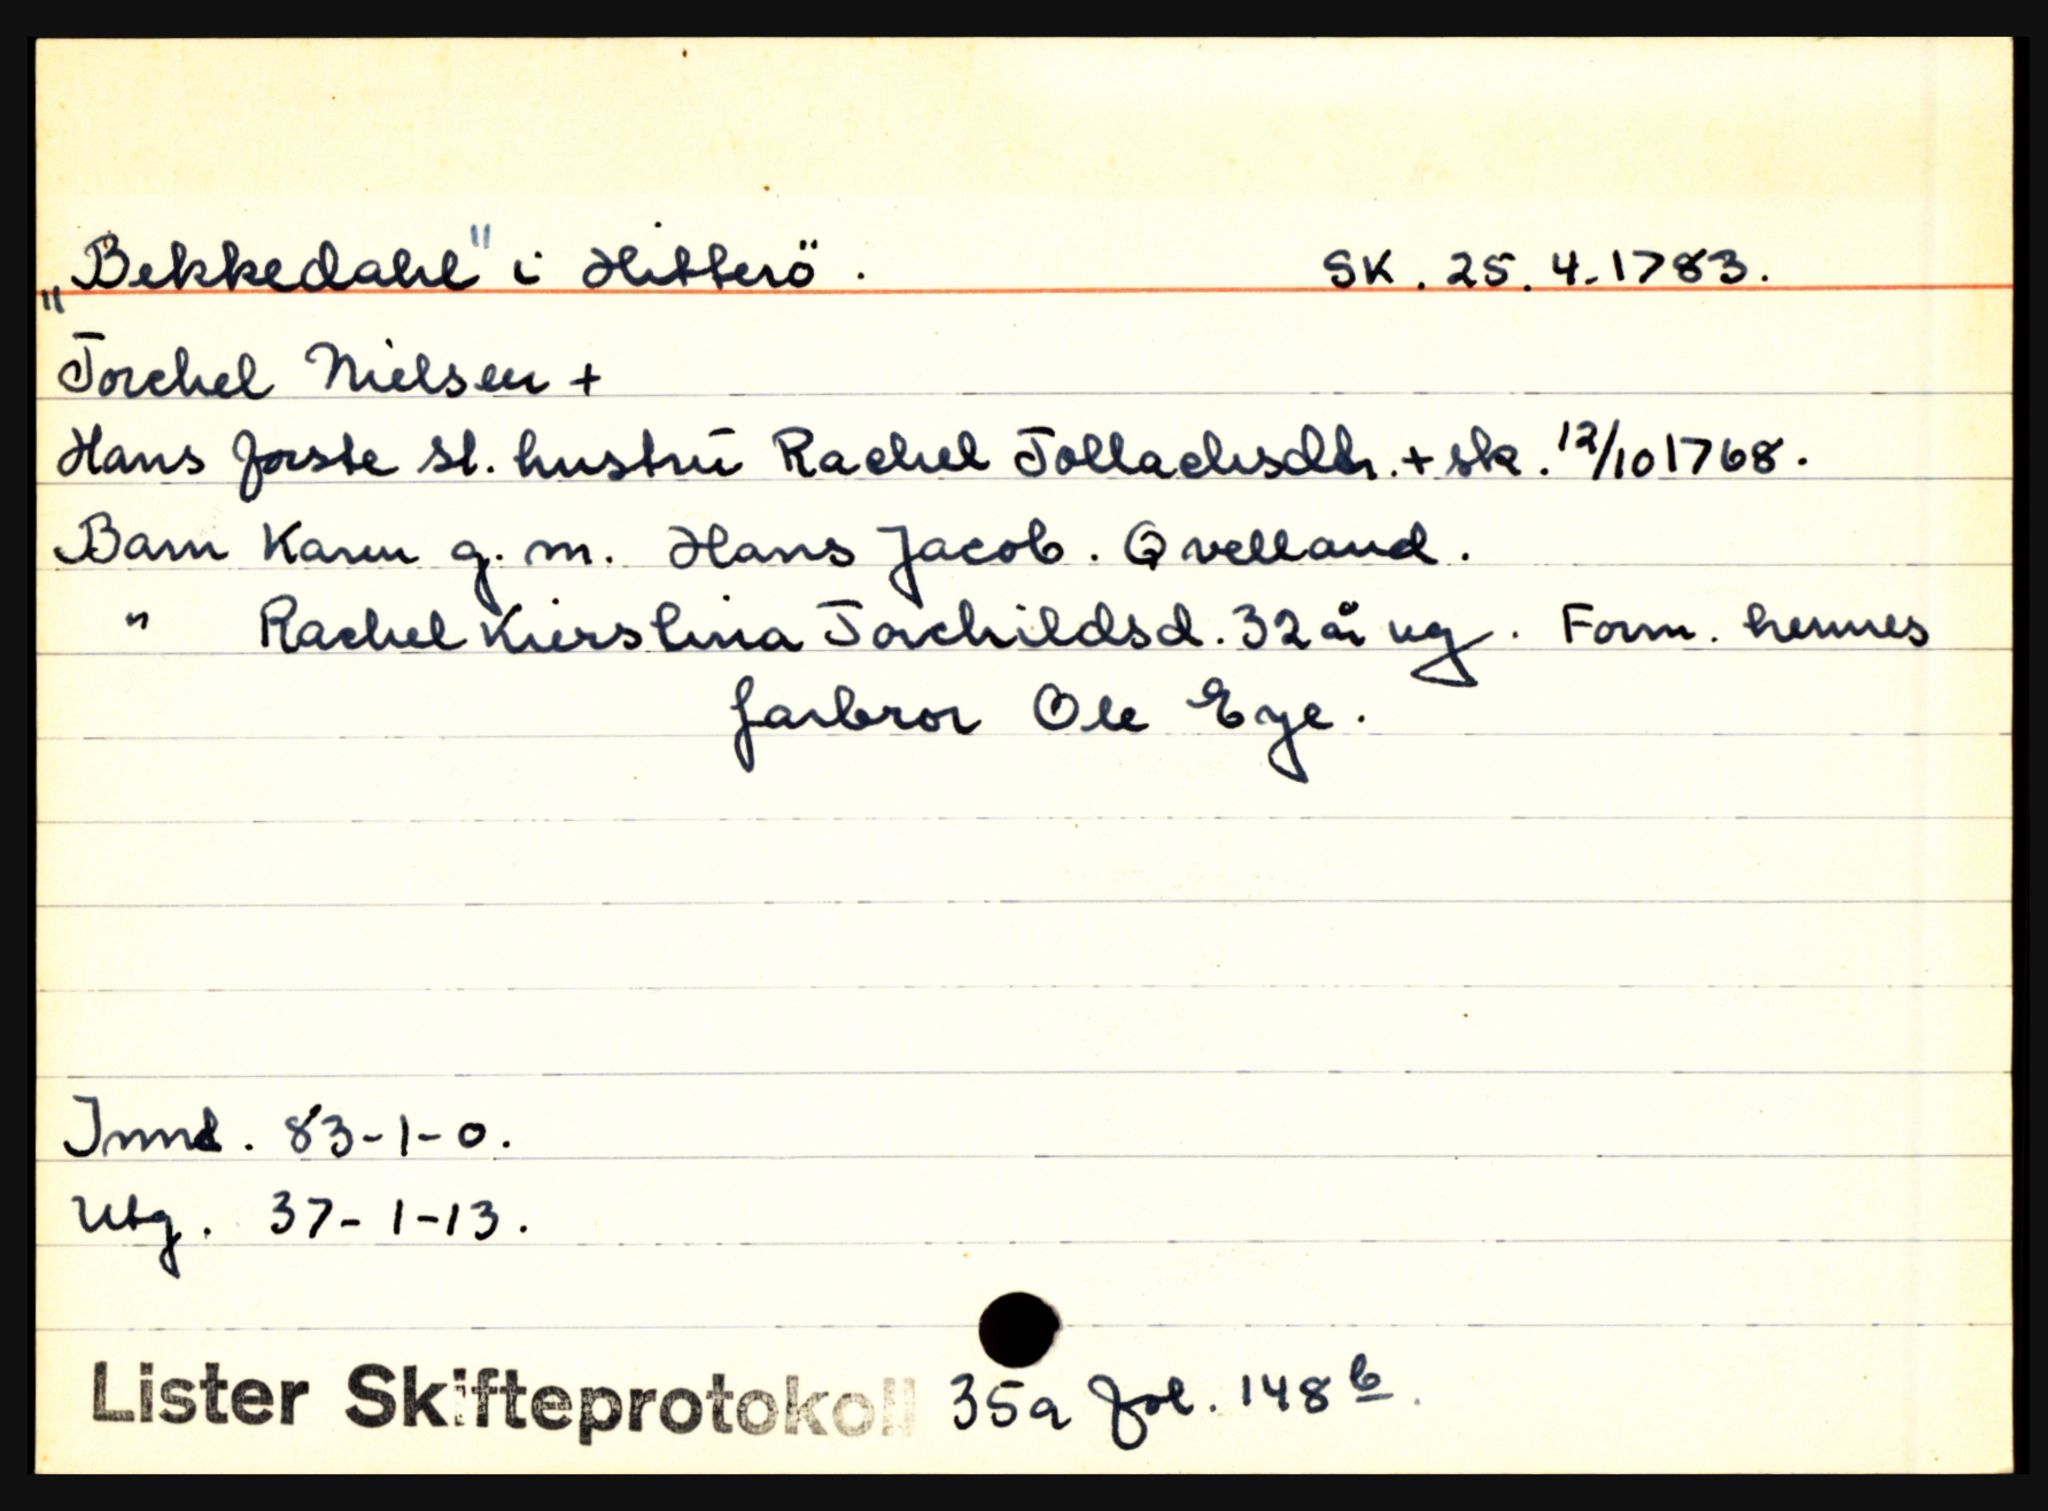 „Bekkedahl" i Hitterö. SK. 25.4.1783.
Torchel Nielsen +
Hans første sl. hustrü Rachel Tollachsdtr. + sk. 12/10 1768.
Barn Karen g.m. Hans Jacob. Qvelland.
" Rachel Kierstina Torchildsd. 32 år ug. Form. hennes
farbror Ole Eye.
Innd. 83-1-0.
Utg. 37-1-13.
Lister Skifteprotokoll 35a fol. 148b.